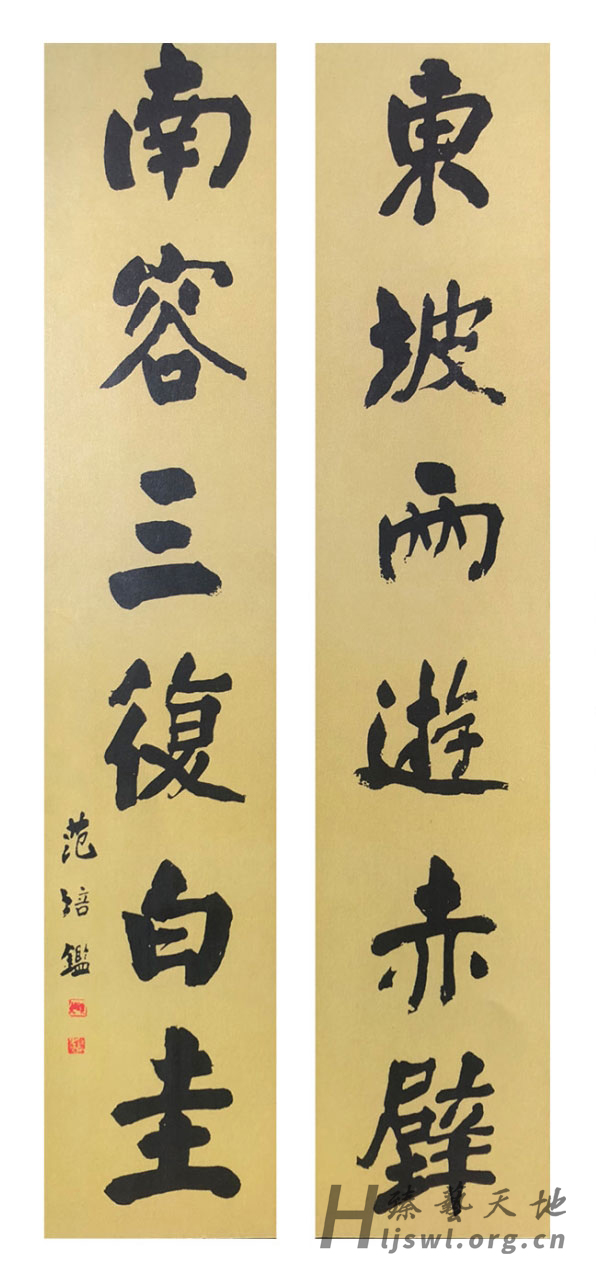 東坡兩遊赤壁
南容三復白圭
范培鑑
臻藝天地
Hljswl.org.cn